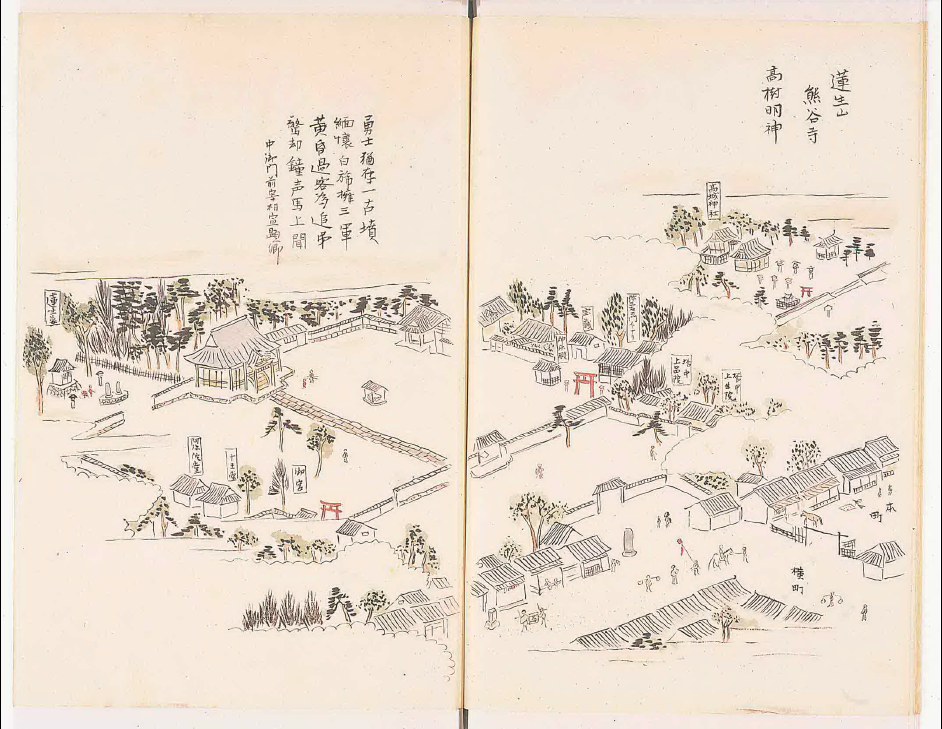 蓮生山
熊谷寺
高樹明神
高城神社
上品院
上生院
本町
横町
勇士猶存一古墳
緬懐白旆擁三軍
黄昏過客為追弔
駐却鐘声馬上聞
中御門前宰相宣顕卿
阿弥陀堂
十王堂
御宮